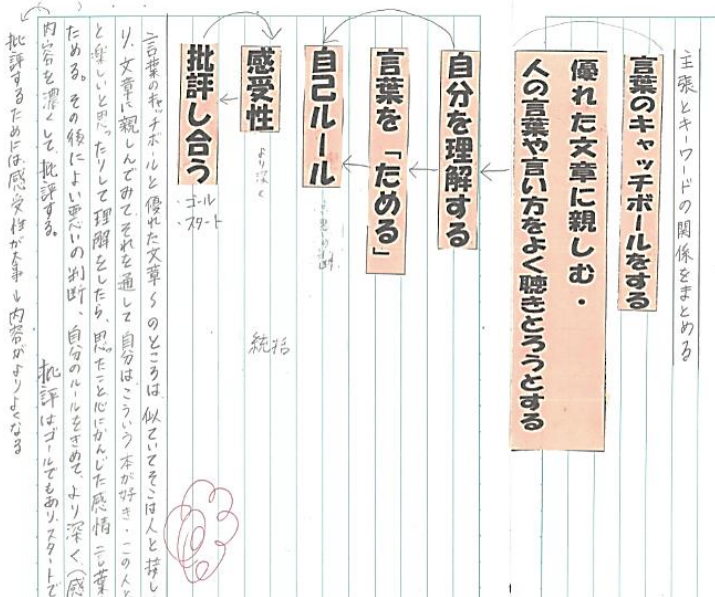 主張とキーワードの関係をまとめる
言葉のキャッチボールをする
優れた文章に親しむ・
人の言葉や言い方をよく聴きとろうとする
自分を理解する
言葉を「ためる」
自己ルール
感受性
より深く
批評し合う
・ゴール
・スタート
統括
言葉のキャッチボールと優れた文章〜のところは似ていてそこは人と接し
り、文章に親しんでみて、それを通して自分はこういう本が好き・この人と
と楽しいと思ったりして理解をしたら、思ったこと心にかんじた感情 言葉
ためる。その後によい悪いの判断、自分のルールをきめて、より深く(感
内容を濃くして、批評する。 批評はゴールでもあり、スタートで
批評するためには感受性が大事 内容がよりよくなる